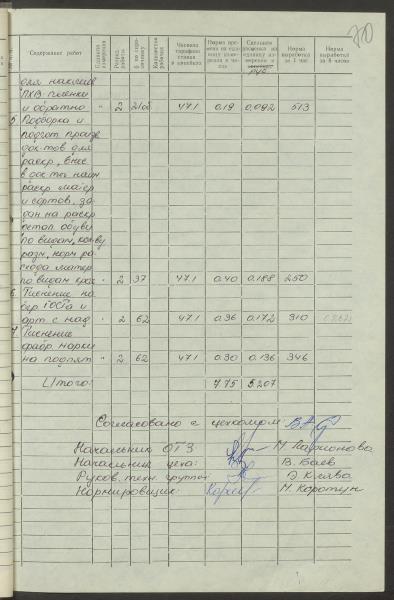 Содержание работ | Единица измерения | Разряд работы | § по справочнику | Категория рабочих | Часовая тарифная ставка в копейках | Норма времени на единицу измерения в часах | Сдельная расценка на единицу измерения в руб | Норма выработки за 1 час | Норма выработки за 8 часов
для наклейки
ПХВ пленки
и обратно " 2 47.1 0.19 0.092 513
5 Подборка и
подгот. произв
док-тов для
раскр, внес
в док-ты наим
раскр матер
и сортов, за-
дан на раскр
детал обуви
по видам, кол-ву
разм, норм рас-
хода матер
по видам " 2 37 47.1 0.40 0.188 250
6. Тиснение но-
мер ГОСТа и
арт с над " 2 62 47.1 0.36 0.172 310
7 Тиснение
фабр. марки
на подпят " 2 62 47.1 0.30 0.136 346
Итого: 7.75 3207
Согласовано с цехкомом:
Начальник ОТЗ М. Ларионова
Начальник цеха: В. Баев
Руков. техн. группы Э Клява
Нормировщик: М. Коротун